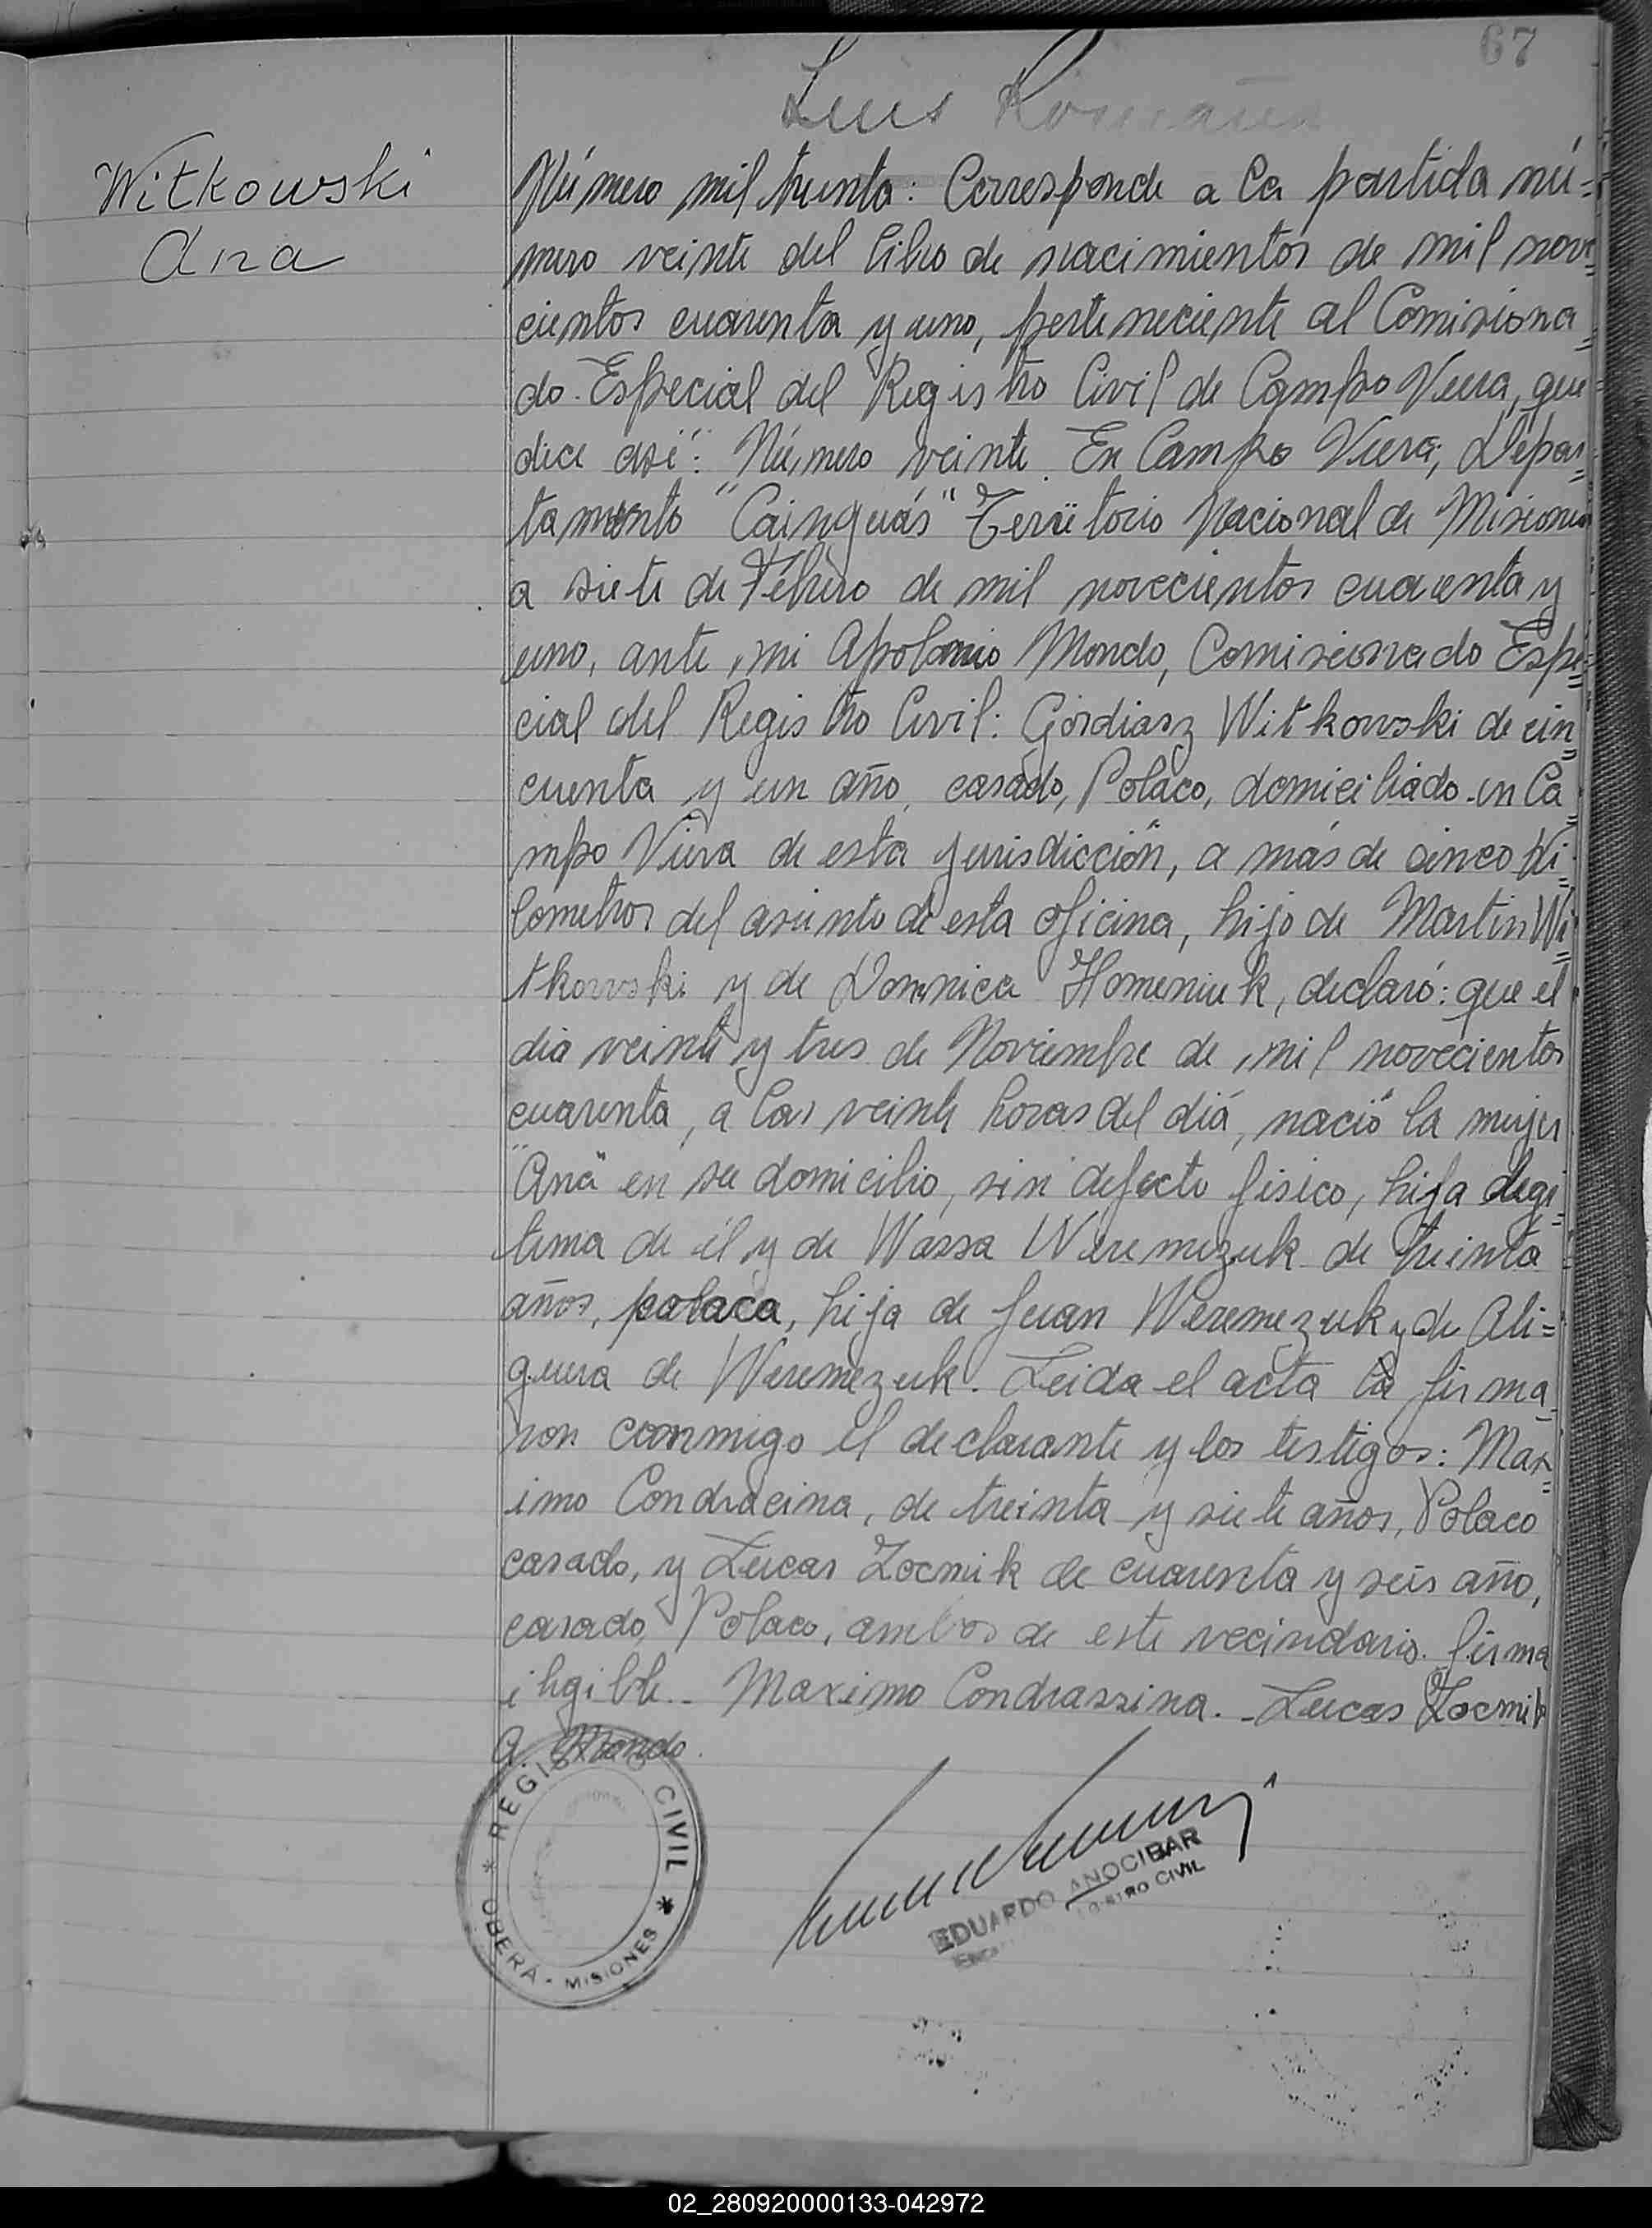 67
Luis
Witkowski
Ana
Número mil treinta: Corresponde a la partida nú=
mero veinte del libro de nacimientos de mil nove=
cientos cuarenta y uno, perteneciente al Comisiona=
do Especial del Registro Civil de Campo Viera, que
dice así: "Número veinte. En Campo Viera, Depar=
tamento "Cainguás" Territorio Nacional de Misiones
a siete de Febrero de mil novecientos cuarenta y
uno, ante mi Apolonio Mondo, Comisionado Espe=
cial del Registro Civil: Gordiasz Witkowski de cin=
cuenta y un año, casado, Polaco, domiciliado en Ca=
mpo Viera de esta jurisdicción, a más de cinco ki=
lometros del asiento de esta oficina, hijo de Martin Wi=
tkowski y de Domnica Homeniuk, declaró: que el
dia veinte y tres de Noviembre de mil novecientos
cuarenta, a las veinte horas del diá, nació la mujer
"Ana" en su domicilio, sin defecto fisico, hija legi=
tima de él y de Wassa Weremezuk de treinta
años, polaca, hija de Juan Weremezuk y de Ali=
guera de Weremezuk. Leida el acta la firma=
ron conmigo el declarante y los testigos: Max=
imo Condracina, de treinta y siete años, Polaco
casado, y Lucas Zocnik de cuarenta y seis año,
casado, Polaco, ambos de este vecindario. firma
ilegible.- Maximo Condrassina.- Lucas Zocnik
A. Mondo.
REGISTRO CIVIL * OBERA - MISIONES *
EDUARDO ANOCIBAR
REGISTRO CIVIL
02_280920000133-042972